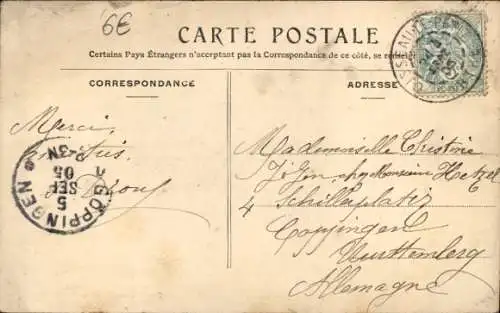 6€
CARTE POSTALE
Certains Pays Étrangers n'acceptent pas la Correspondance de ce côté, se
CORRESPONDANCE
ADRESSE
Merci
GÖPPINGEN
5
SEP
05
Mademoiselle Christine
chez Monsieur Hetzel
4 Schillerplatz
Goppingen
Wurttemberg
Allemagne